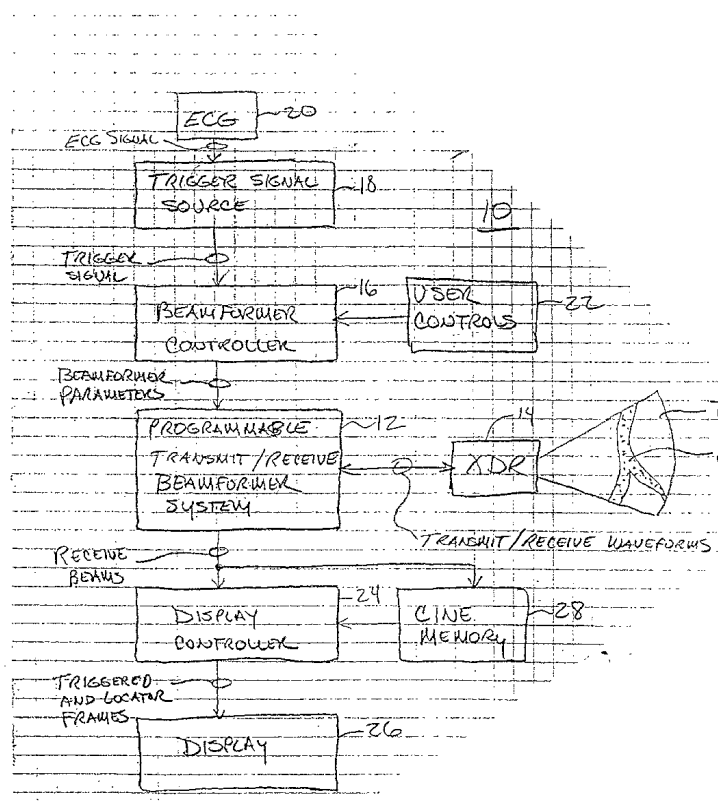 ECG
20
ECG SIGNAL
TRIGGER SIGNAL
SOURCE
18
10
TRIGGER
SIGNAL
16
USER
CONTROLS
22
BEAMFORMER
CONTROLLER
BEAMFORMER
PARAMETERS
PROGRAMMABLE
TRANSMIT/RECEIVE
BEAMFORMER
SYSTEM
12
14
XDR
TRANSMIT/RECEIVE WAVEFORMS
RECEIVE
BEAMS
24
DISPLAY
CONTROLLER
CINE
MEMORY
28
TRIGGERED
AND LOCATOR
FRAMES
26
DISPLAY